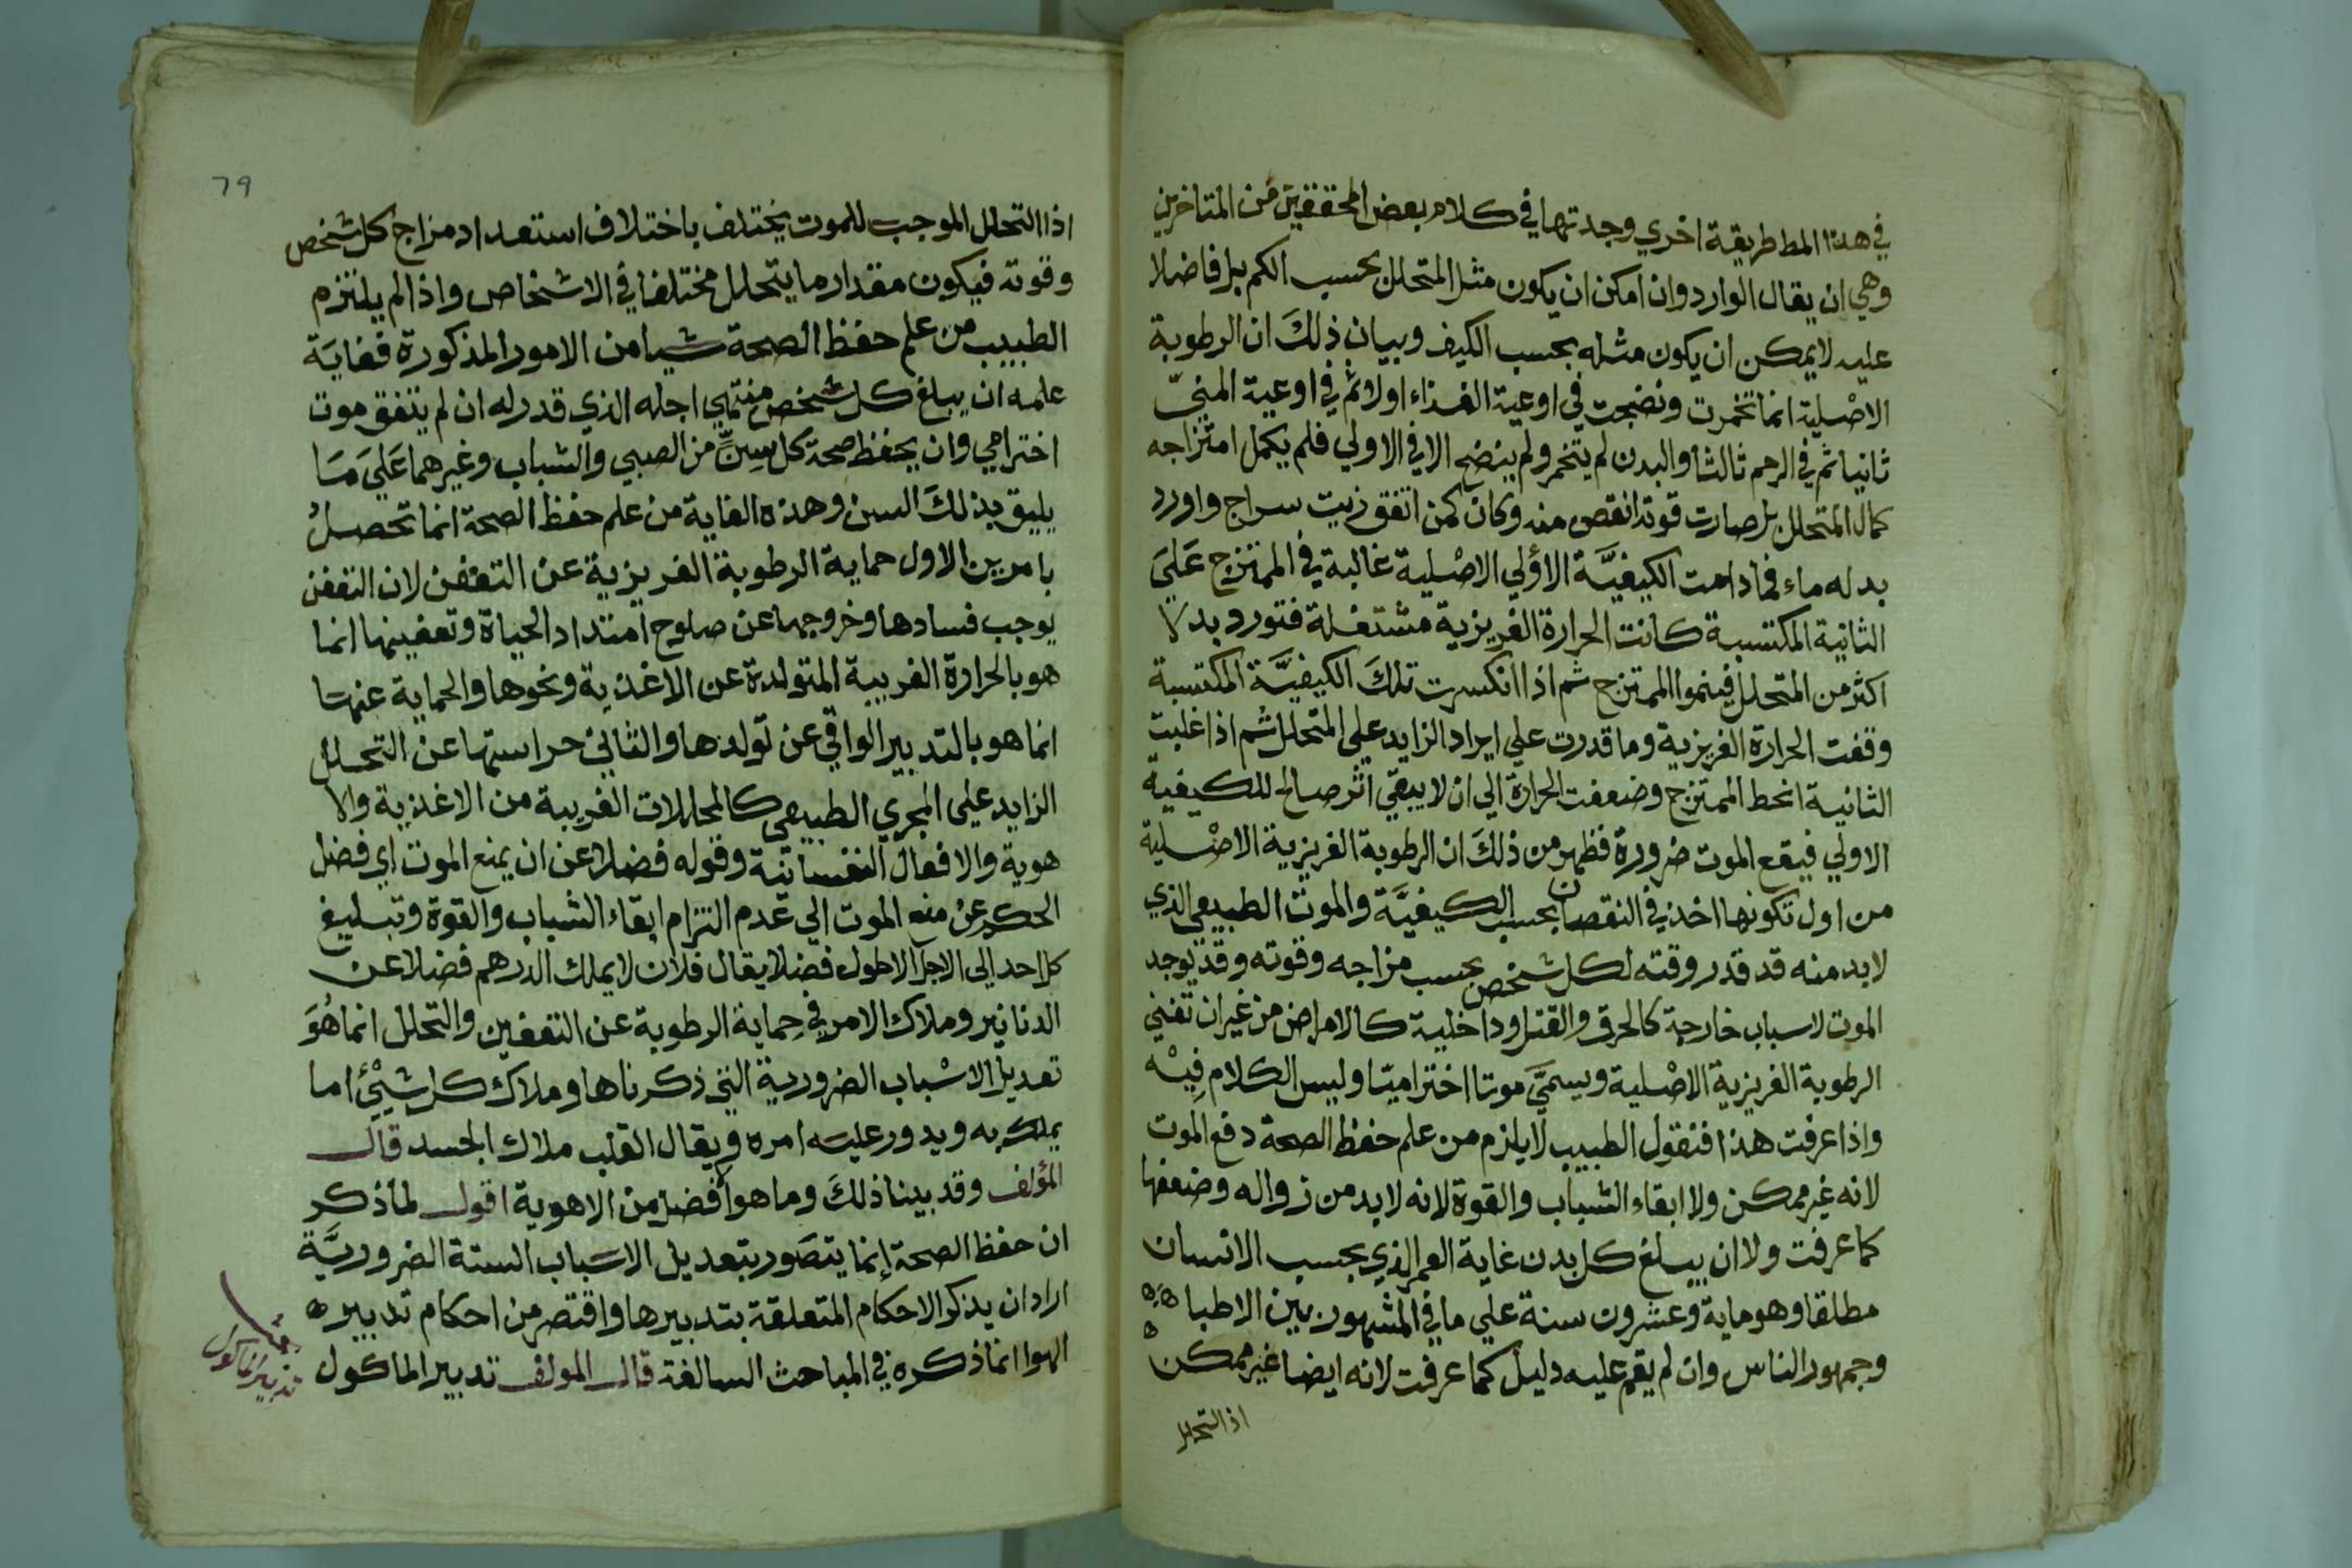 في هذا المط طريقة اخري وجدتها في كلام بعض المحققين من المتاخرين
وهي ان يقال الوارد وان امكن ان يكون مثل المتحلل بحسب الكم بل فاضلا
عليه لا يمكن ان يكون مثله بحسب الكيف وبيان ذلك ان الرطوبة
الاصلية انما تخمرت ونضجت في اوعية الغذاء اولا ثم في اوعية المني
ثانيا ثم في الرحم ثالثا والبدن لم يتخمر ولم ينضج الا في الاولي فلم يكمل امتزاجه
كمال المتحلل بل صارت قوته انقص منه وكان كمن اتفق زيت سراج واورد
بدله ماء فما دامت الكيفيَّة الاُولي الاصْلية غالبة في الممتزج عَليَ
الثانية المكتسبة كانت الحرارة الغريزية مشتعلة فتورد بدلا
اكثر من المتحلل فينموا الممتزج ثم اذا انكسرت تلكَ الكيفيَّة المكتسبة
وقفت الحرارة الغريزية وما قدرت علي ايراد الزايد علي المتحلل ثم اذا غلبت
الثانية انحط الممتزج وضعفت الحرارة الي ان لا يبقي اثر صالح للكيفية
الاولي فيقع الموت ضرورة فظهر من ذلكَ ان الرطوبة الغريزية الاصْلية
من اول تكونها اخذ في النقصان بحسب الكيفيَّة والموت الطبيعي الذي
لا بد منه قد قدر وقته لكل شخص بحسب مزاجه وقوته وقد يوجد
الموت لاسباب خارجة كالحرق والقتل وداخلية كالامراض من غير ان تفني
الرطوبة الغريزية الاصْلية ويسميَّ موتا اختراميّا وليس الكلام فِيْه
واذا عرفت هذا فنقول الطبيب لا يلزم من علم حفظ الصحة دفع الموت
لانه غير ممكن ولا ابقاء الشباب والقوة لانه لا بد من زواله وضعفها
كما عرفت ولا ان يبلغ كل بدن غاية العمر الذي بحسب الانسان
مطلقا وهو ماية وعشرون سنة علي ما في المشهور بين الاطبا
وجمهور الناس وان لم يقم عليه دليل كما عرفت لانه ايضا غير ممكن
اذ التحلل
79
اذا التحلل الموجب للموت يختلف باختلاف استعداد مزاج كل شخص
وقوته فيكون مقدار ما يتحلل مختلفا في الاشخاص واذا لم يلتزم
الطبيب من علم حفظ الصحة شيا من الامور المذكورة فغايَة
علمه ان يبلغ كل شخص منتهي اجله الذي قدر له ان لم يتفق موت
اخترامي وان يحفظ صحة كل سِنٍّ من الصبي والشباب وغيرهما عَليَ مَا
يليق بذلكَ السن وهذه الغاية من علم حفظ الصحة انما تحصلُ
بامرين الاول حماية الرطوبة الغريزية عن التعفن لان التعفن
يوجب فسادها وخروجها عن صلوح امتداد الحياة وتعفينها انما
هو بالحرارة الغريبة المتولدة عن الاغذية ونحوها والحماية عنها
انما هو بالتدبير الواقي عن تولدها والثاني حراستها عن التحلل
الزايد علي المجري الطبيعي كالمحللات الغريبة من الاغذية والا
هوية والافعال النفسانية وقوله فضلا عن ان يمنع الموت اي فضل
الحكم عن منه الموت الي عدم التزام ابقاء الشباب والقوة وتبليغ
كل احد الي الاجل الاطول فضلا يقال فلان لا يملك الدرهم فضلا عن
الدنانير وملاك الامر في حماية الرطوبة عن التعفين والتحلل انما هُوَ
تعديل الاسْباب الضرورية التي ذكرناها وملاك كل شيْئ اما
يملك به ويدور عليه امره ويقال القلب ملاك الجسد قال
المؤلف وقد بينا ذلكَ وما هو أفضل من الاهوية اقول لما ذكر
ان حفظ الصحة إنما يتصَور بتعديل الاسَباب الستة الضروريَّة
اراد ان يذكر الاحكام المتعلقة بتدبيرها واقتصر من احكام تدبير
الهوا انما ذكره في المباحث السالفة قال المولف تدبير الماكول
تدبير الماكول